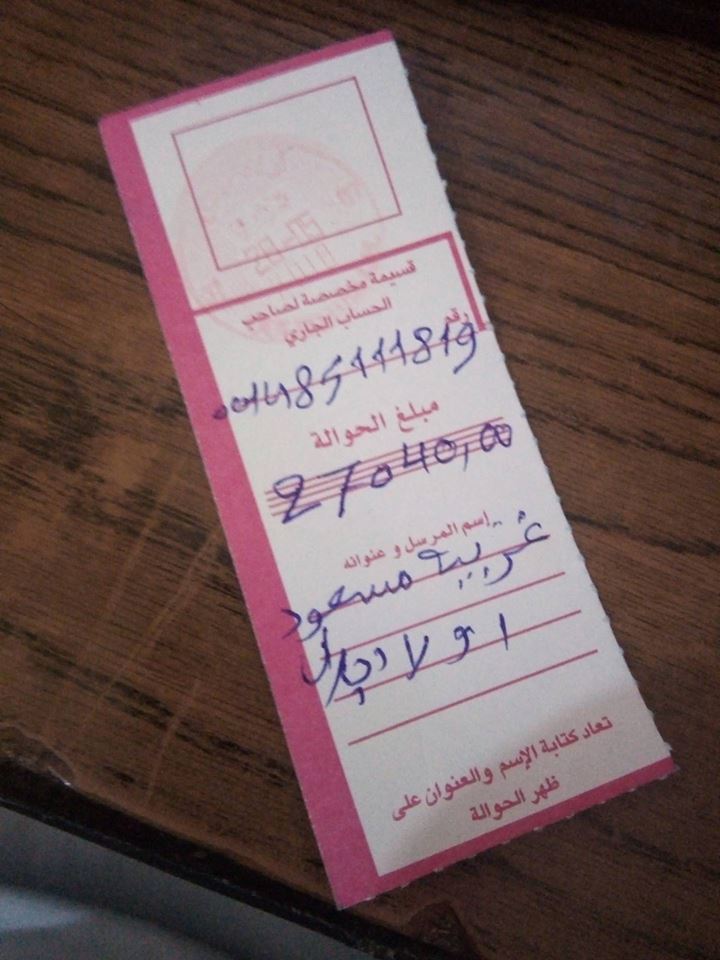 قسيمة مخصصة لصاحب
الحساب الجاري
رقم
مبلغ الحوالة
27040,00
إسم المرسل و عنوانه
غريبة مسعود
اولاد جلال
تعاد كتابة الإسم والعنوان على
ظهر الحوالة